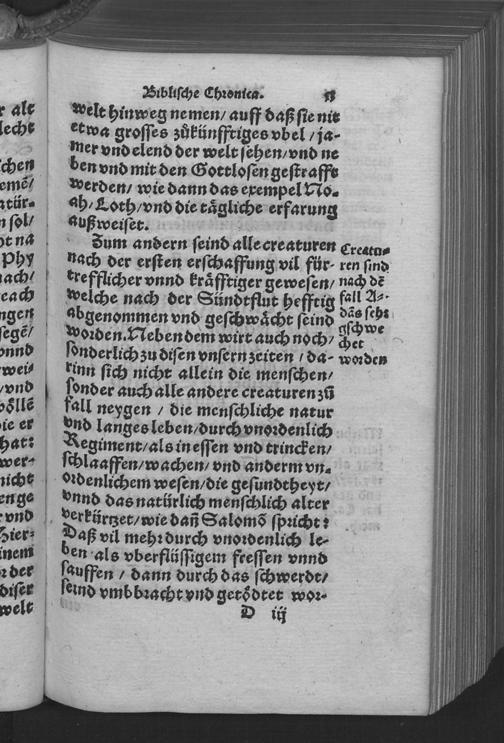 Biblische Chronica.
welt hinweg nemen/ auff daß sie nit
etwa grosses zůkünfftiges vbel/ ja-
mer vnd elend der welt sehen/ vnd ne
ben vnd mit den Gottlosen gestrafft
werden/ wie dann das exempel No-
ah/ Loth/ vnd die tägliche erfarung
außweiset.
Zum andern seind alle creaturen
nach der ersten erschaffung vil für-
trefflicher vnnd kräfftiger gewesen/
welche nach der Sündtflut hefftig
abgenommen vnd geschwächt seind
worden. Neben dem wirt auch noch/
sonderlich zu disen vnsern zeiten/ da-
rinn sich nicht allein die menschen/
sonder auch alle andere creaturen zů
fall neygen/ die menschliche natur
vnd langes leben/ durch vnordenlich
Regiment/ als in essen vnd trincken/
schlaaffen/ wachen/ vnd anderm vn-
ordenlichem wesen/ die gesundtheyt/
vnnd das natürlich menschlich alter
verkürtzet/ wie dañ Salomõ spricht:
Daß vil mehr durch vnordenlich le-
ben als vberflüssigem fressen vnnd
sauffen/ dann durch das schwerdt/
seind vmbbracht vnd getödtet wor-
D iij
Creatu-
ren sind
nach dẽ
fall A-
dãs sehr
gschwe
chet
worden
r alt
lecht
chen
emẽ/
atür-
n sol/
t na
Phy
ach/
each
ngen
segẽ/
vnnd
weis
/vnd
völlẽ
ie er
hat:
wer-
nicht
enge
r vnd
hier-
inem
r der
diser
welt